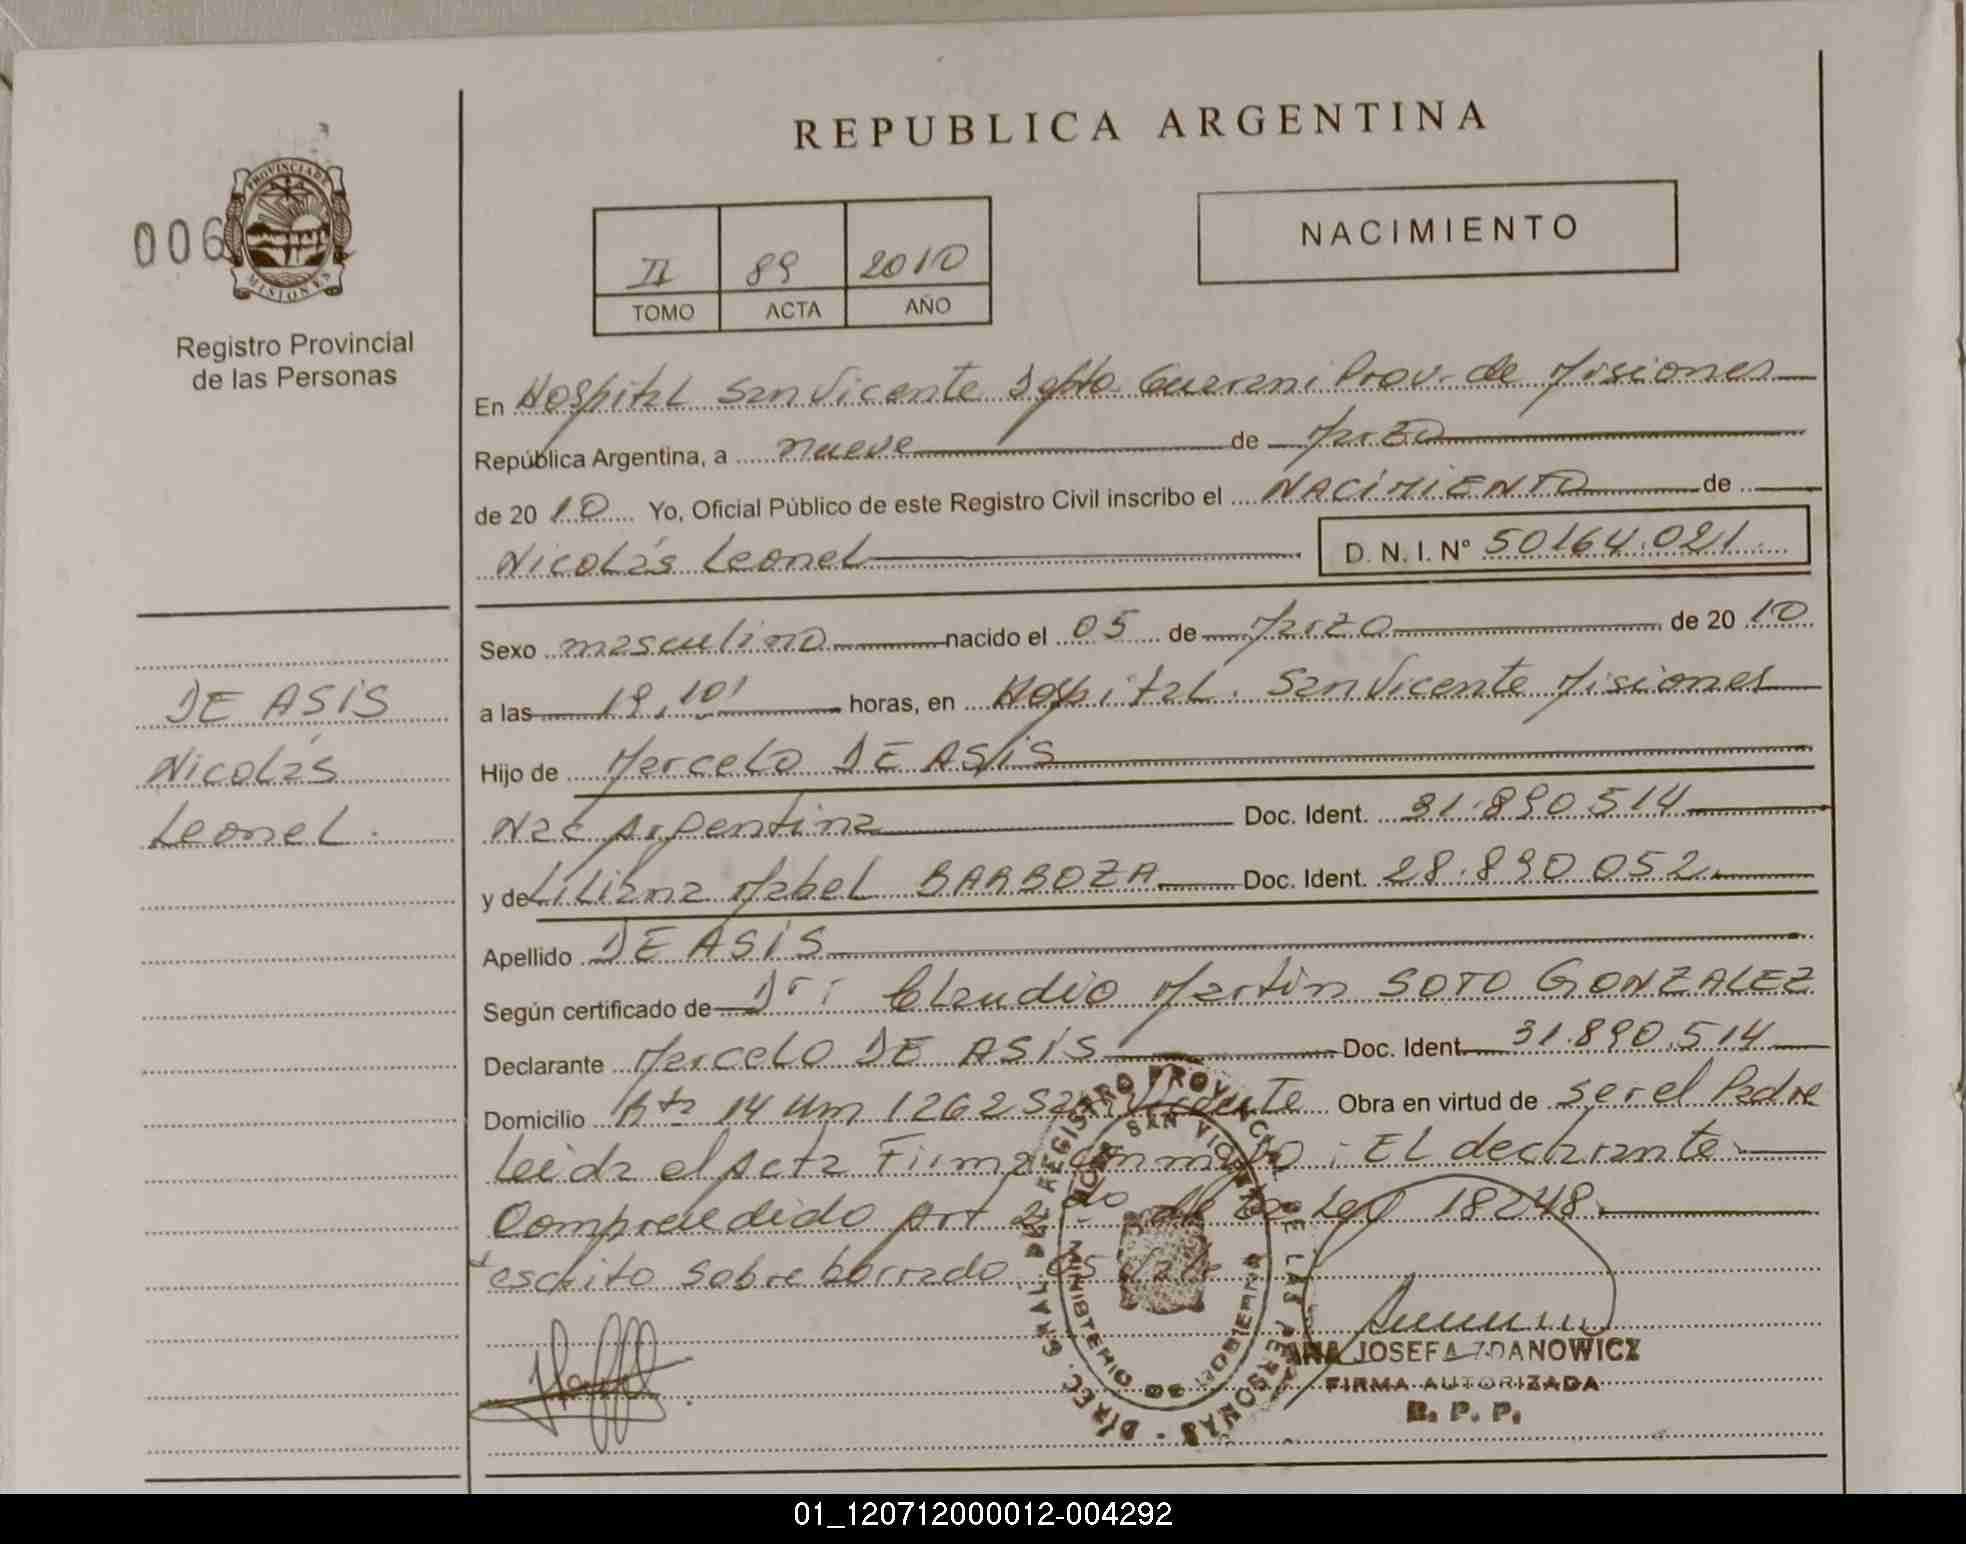 REPUBLICA ARGENTINA
006
PROVINCIA DE
MISIONES
Registro Provincial
de las Personas
II 89 2010
TOMO ACTA AÑO
NACIMIENTO
En Hospital San Vicente Dpto. Guarani Prov. de Misiones
República Argentina, a nueve de Marzo
de 2010 Yo, Oficial Público de este Registro Civil inscribo el NACIMIENTO de
Nicolás Leonel D. N. I. Nº 50164.021
Sexo masculino nacido el 05 de Marzo de 2010
a las 19,10' horas, en Hospital. San Vicente Misiones
Hijo de Marcelo DE ASIS
Nac Argentina Doc. Ident. 31.890.514
y de Liliana Mabel BARBOZA Doc. Ident. 28.890 052
Apellido DE ASIS
Según certificado de Dr: Claudio Martin SOTO GONZALEZ
Declarante Marcelo DE ASIS Doc. Ident. 31.890.514
Domicilio Rta 14 Km 1262 San Vicente Obra en virtud de ser el Padre
Leida el Acta Firma conmigo: EL declarante
Comprendido Art 2do de la Ley 18248.
escrito sobre borrado, 05 Vale
DE ASIS
Nicolás
Leonel.
DIREC. GRAL. DEL REGISTRO PROVINCIAL DE LAS PERSONAS
SAN VICENTE
MINISTERIO DE GOBIERNO
ANA JOSEFA ZDANOWICZ
FIRMA AUTORIZADA
R. P. P.
01_120712000012-004292